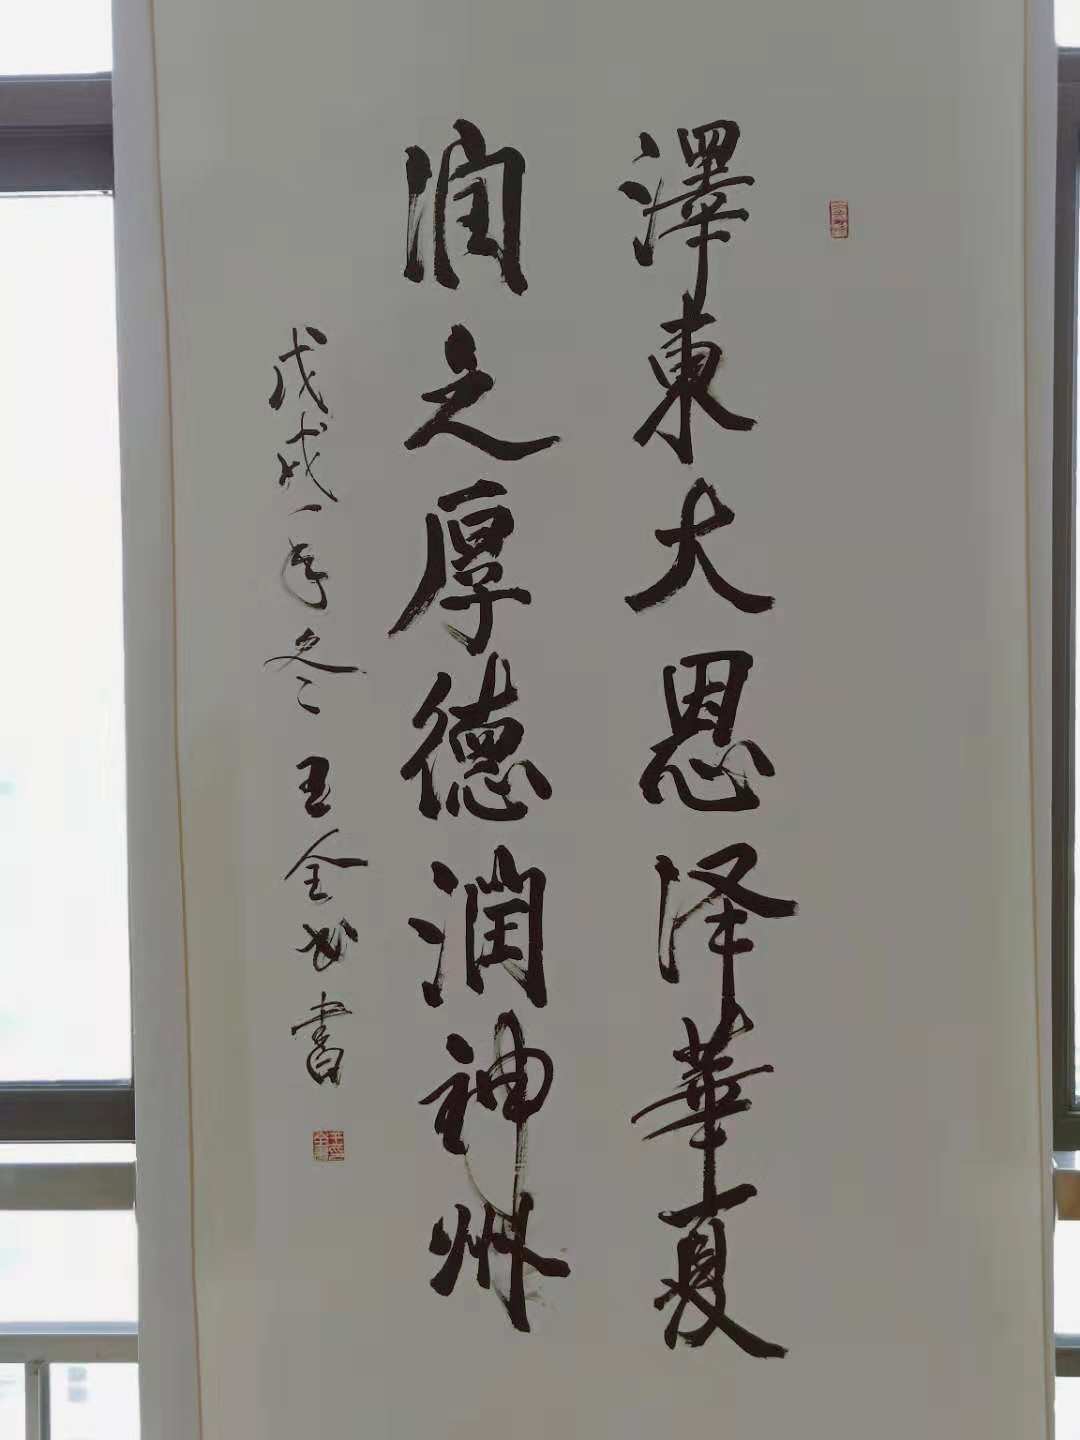 澤東大恩泽華夏
润之厚德润神州
戊戌年冬 王全书書